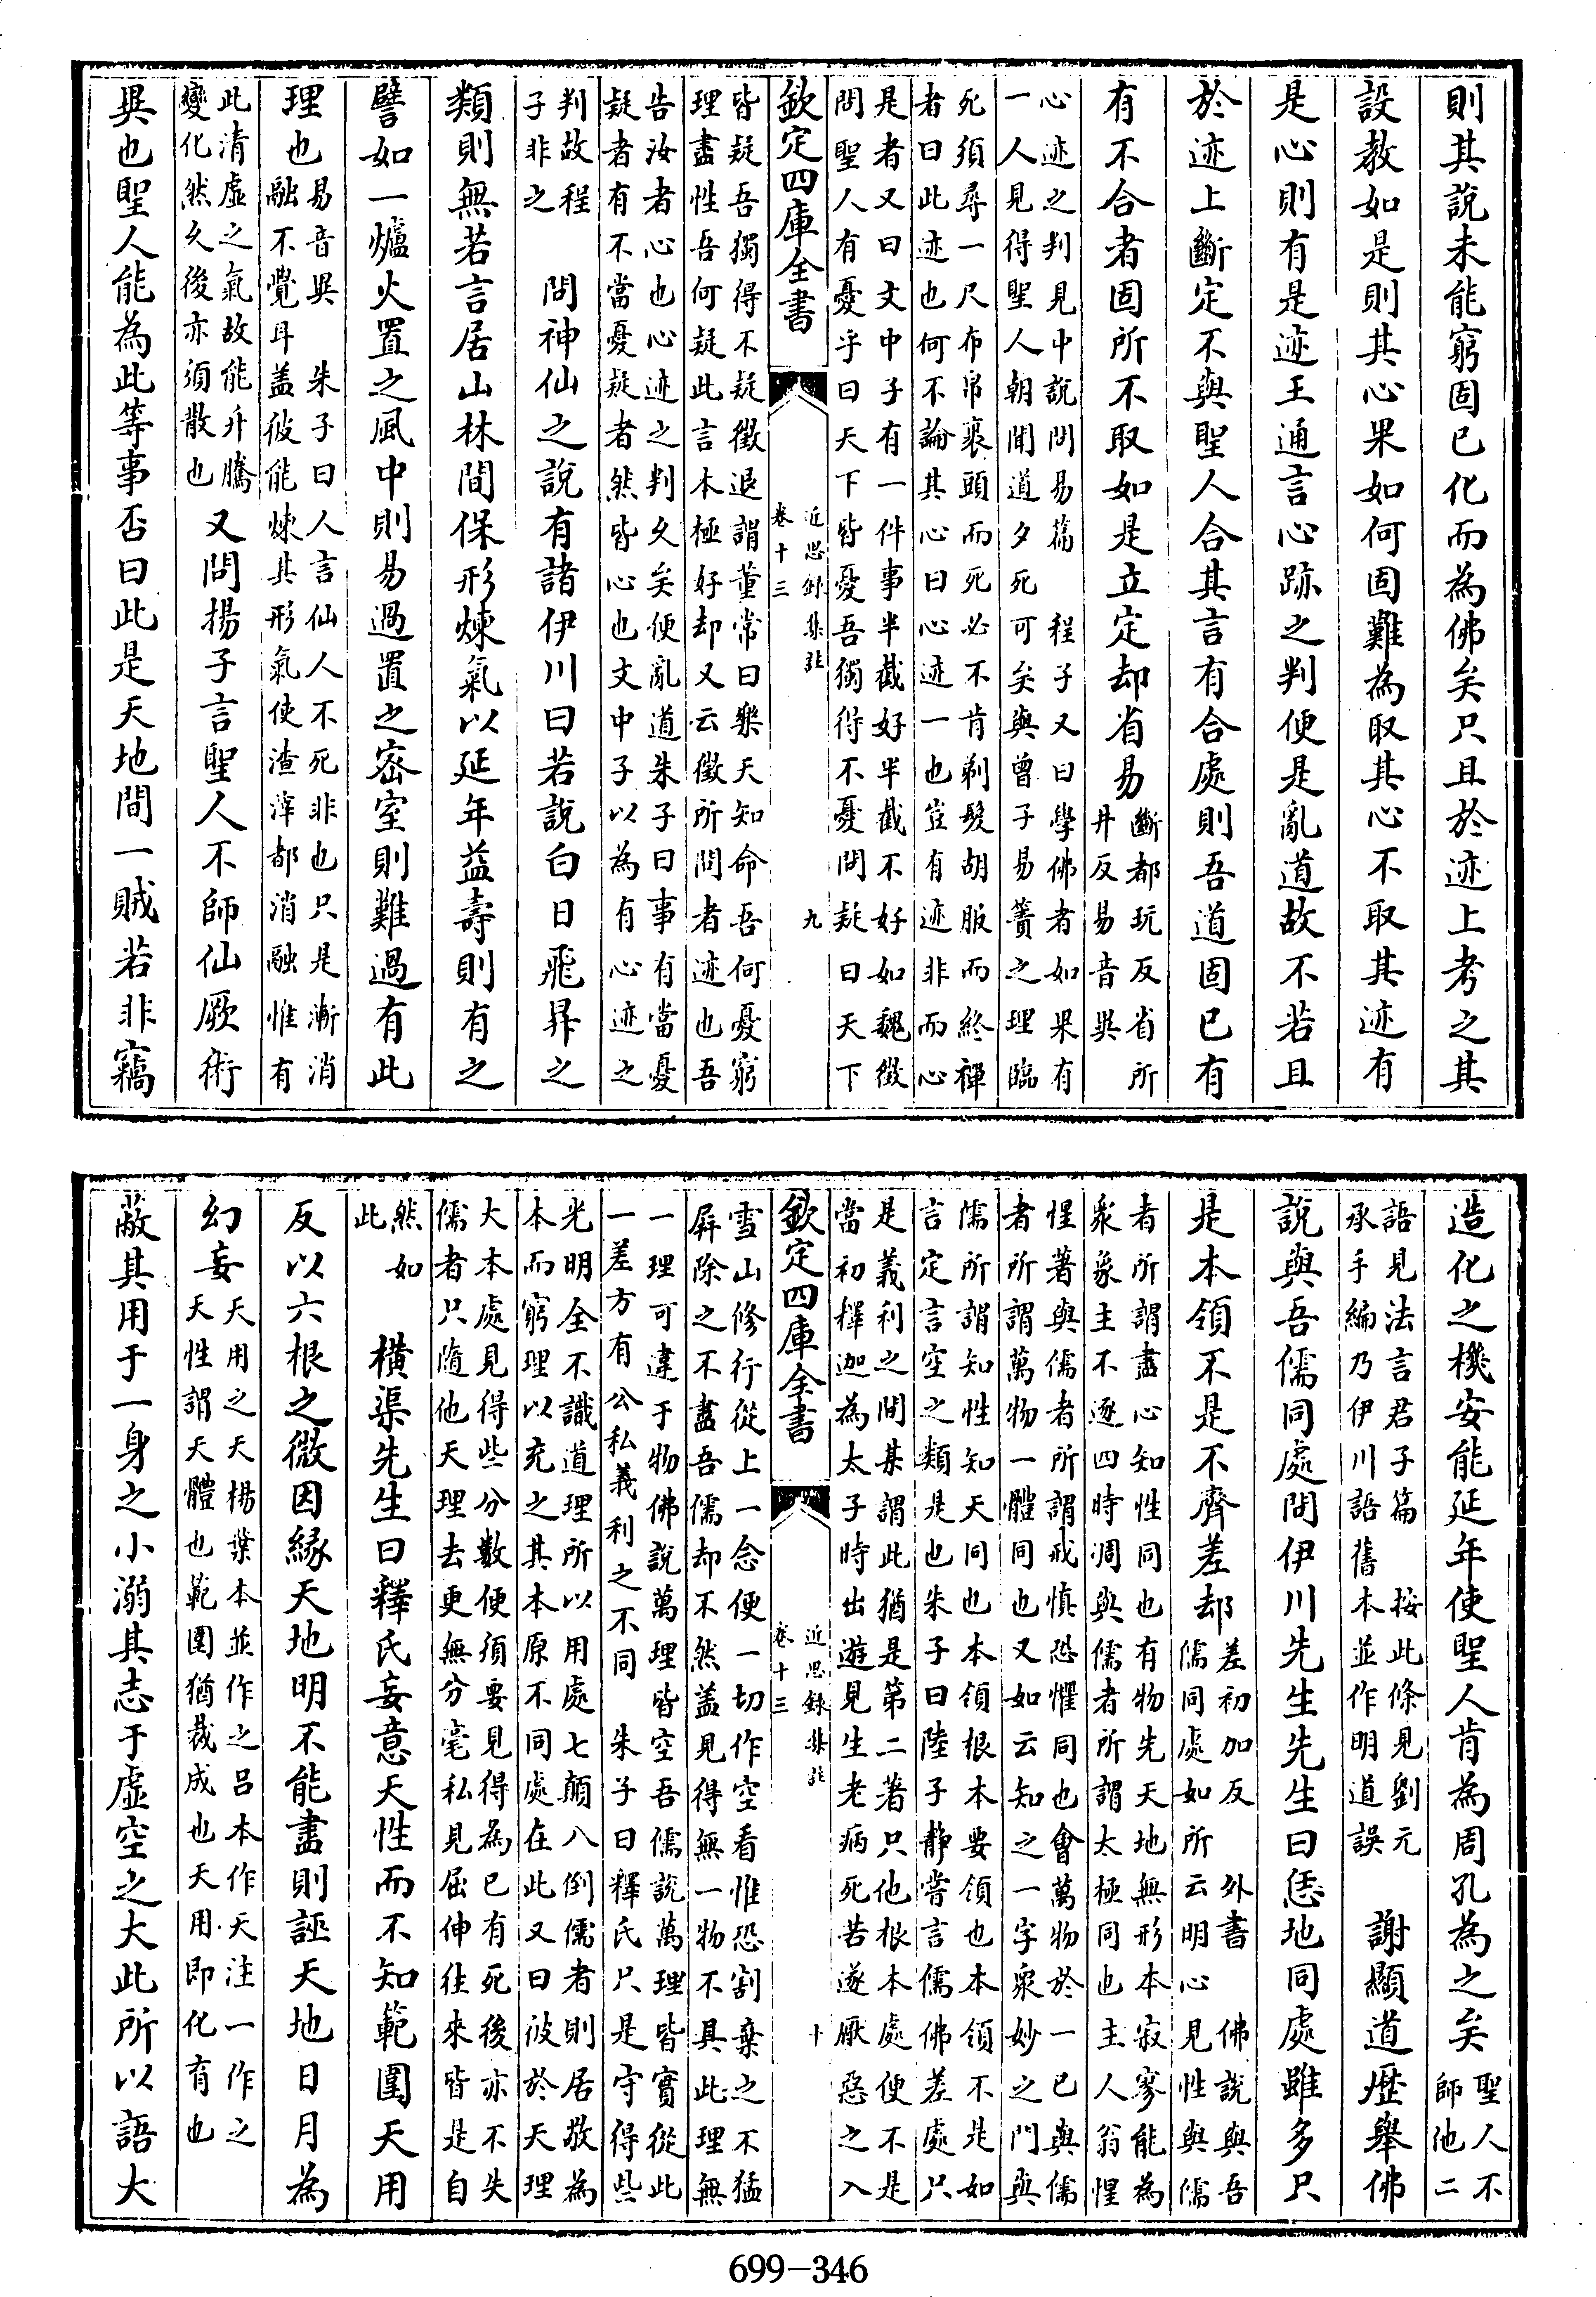 則其說未能窮固已化而為佛矣只且於迹上考之其
設教如是則其心果如何固難為取其心不取其迹有
是心則有是迹王通言心跡之判便是亂道故不若且
於迹上斷定不與聖人合其言有合處則吾道固已有
有不合者固所不取如是立定却省易斷都玩反省所
井反易音異
心迹之判見中說問易篇　程子又曰學佛者如果有
一人見得聖人朝聞道夕死可矣與曾子易簀之理臨
死須尋一尺布帛裹頭而死必不肯剃髮胡服而終禪
者曰此迹也何不論其心曰心迹一也豈有迹非而心
是者又曰文中子有一件事半截好半截不好如魏徵
問聖人有憂乎曰天下皆憂吾獨得不憂問疑曰天下
欽定四庫全書
近思錄集註
卷十三
九
皆疑吾獨得不疑徵退謂董常曰樂天知命吾何憂窮
理盡性吾何疑此言本極好却又云徵所問者迹也吾
告汝者心也心迹之判久矣便亂道朱子曰事有當憂
疑者有不當憂疑者然皆心也文中子以為有心迹之
判故程
子非之
問神仙之說有諸伊川曰若說白日飛昇之
類則無若言居山林間保形煉氣以延年益壽則有之
譬如一爐火置之風中則易過置之密室則難過有此
理也易音異　朱子曰人言仙人不死非也只是漸消
融不覺耳盖彼能煉其形氣使渣滓都消融惟有
此清虛之氣故能升騰
變化然久後亦須散也
又問揚子言聖人不師仙厥術
異也聖人能為此等事否曰此是天地間一賊若非竊
造化之機安能延年使聖人肯為周孔為之矣聖人不
師他二
語見法言君子篇　按此條見劉元
承手編乃伊川語舊本並作明道誤
謝顯道歷舉佛
說與吾儒同處問伊川先生先生曰恁地同處雖多只
是本領不是不齊差却差初加反　外書　佛說與吾
儒同處如所云明心見性與儒
者所謂盡心知性同也有物先天地無形本寂寥能為
衆象主不逐四時凋與儒者所謂太極同也主人翁惺
惺著與儒者所謂戒慎恐懼同也會萬物於一已與儒
者所謂萬物一體同也又如云知之一字衆妙之門與
儒所謂知性知天同也本領根本要領也本領不是如
言定言空之類是也朱子曰陸子靜嘗言儒佛差處只
是義利之間某謂此猶是第二著只他根本處便不是
當初釋迦為太子時出遊見生老病死苦遂厭惡之入
欽定四庫全書
近思錄集註
卷十三
十
雪山修行從上一念便一切作空看惟恐割棄之不猛
屏除之不盡吾儒却不然盖見得無一物不具此理無
一理可違于物佛說萬理皆空吾儒說萬理皆實從此
一差方有公私義利之不同　朱子曰釋氏只是守得些
光明全不識道理所以用處七顛八倒儒者則居敬為
本而窮理以充之其本原不同處在此又曰彼於天理
大本處見得些分數便須要見得為已有死後亦不失
儒者只隨他天理去更無分毫私見屈伸往來皆是自
然如
此
橫渠先生曰釋氏妄意天性而不知範圍天用
反以六根之微因緣天地明不能盡則誣天地日月為
幻妄天用之天楊葉本並作之呂本作天注一作之
天性謂天體也範圍猶裁成也天用即化有也
蔽其用于一身之小溺其志于虛空之大此所以語大
699-346